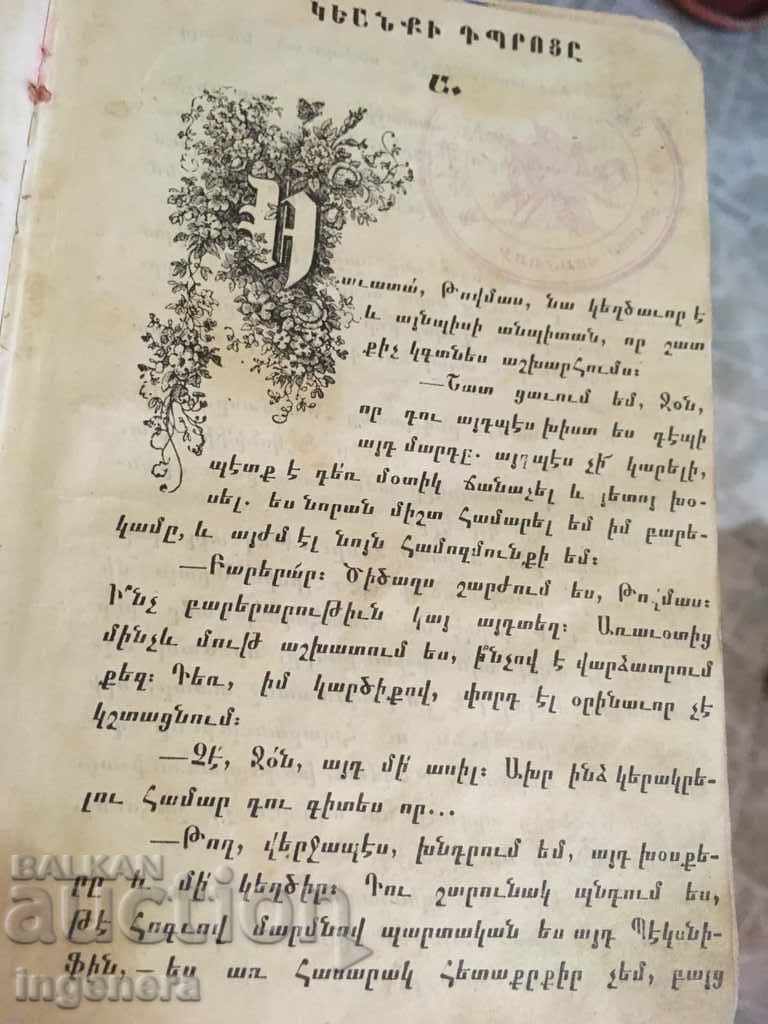 ԿԵԱՆՔԻ ԴՊՐՈՑԸ
Ա.
Հաւատա՛, Թովմաս, նա կեղծաւոր է
և այնպիսի անպիտան, որ շատ
քիչ կգտնես աշխարհումս:
—Շատ ցաւում եմ, Ջօն,
որ դու այդպէս խիստ ես դէպի
այդ մարդը. այդպէս չի՛ կարելի,
պէտք է դե՛ռ մօտիկ ճանաչել և յետոյ խօ-
սել. ես նորան միշտ համարել եմ իմ բարե-
կամը, և այժմ էլ նոյն համոզմունքի եմ:
—Բարերա՛ր: Ծիծաղս շարժում ես, Թովմաս:
Ի՞նչ բարերարութիւն կայ այդտեղ: Առաւօտից
մինչև մութ աշխատում ես, ի՞նչով է վարձատրում
քեզ: Դեռ, իմ կարծիքով, փորդ էլ օրինաւոր չէ
կշտացնում:
—Չէ՛, Ջօ՛ն, այդ մի՛ ասիլ: Ախր ինձ կերակրե-
լու համար դու գիտես որ...
—Թող, վերջապէս, խնդրում եմ, այդ խօսքե-
րը և մի՛ կեղծիր: Դու շարունակ պնդում ես,
թէ հոգւով մարմնով պարտական ես այդ Պէկսնի-
ֆին,—ես առ հասարակ հետաքրքիր չեմ, բայց
BALKAN
auction
ingenera